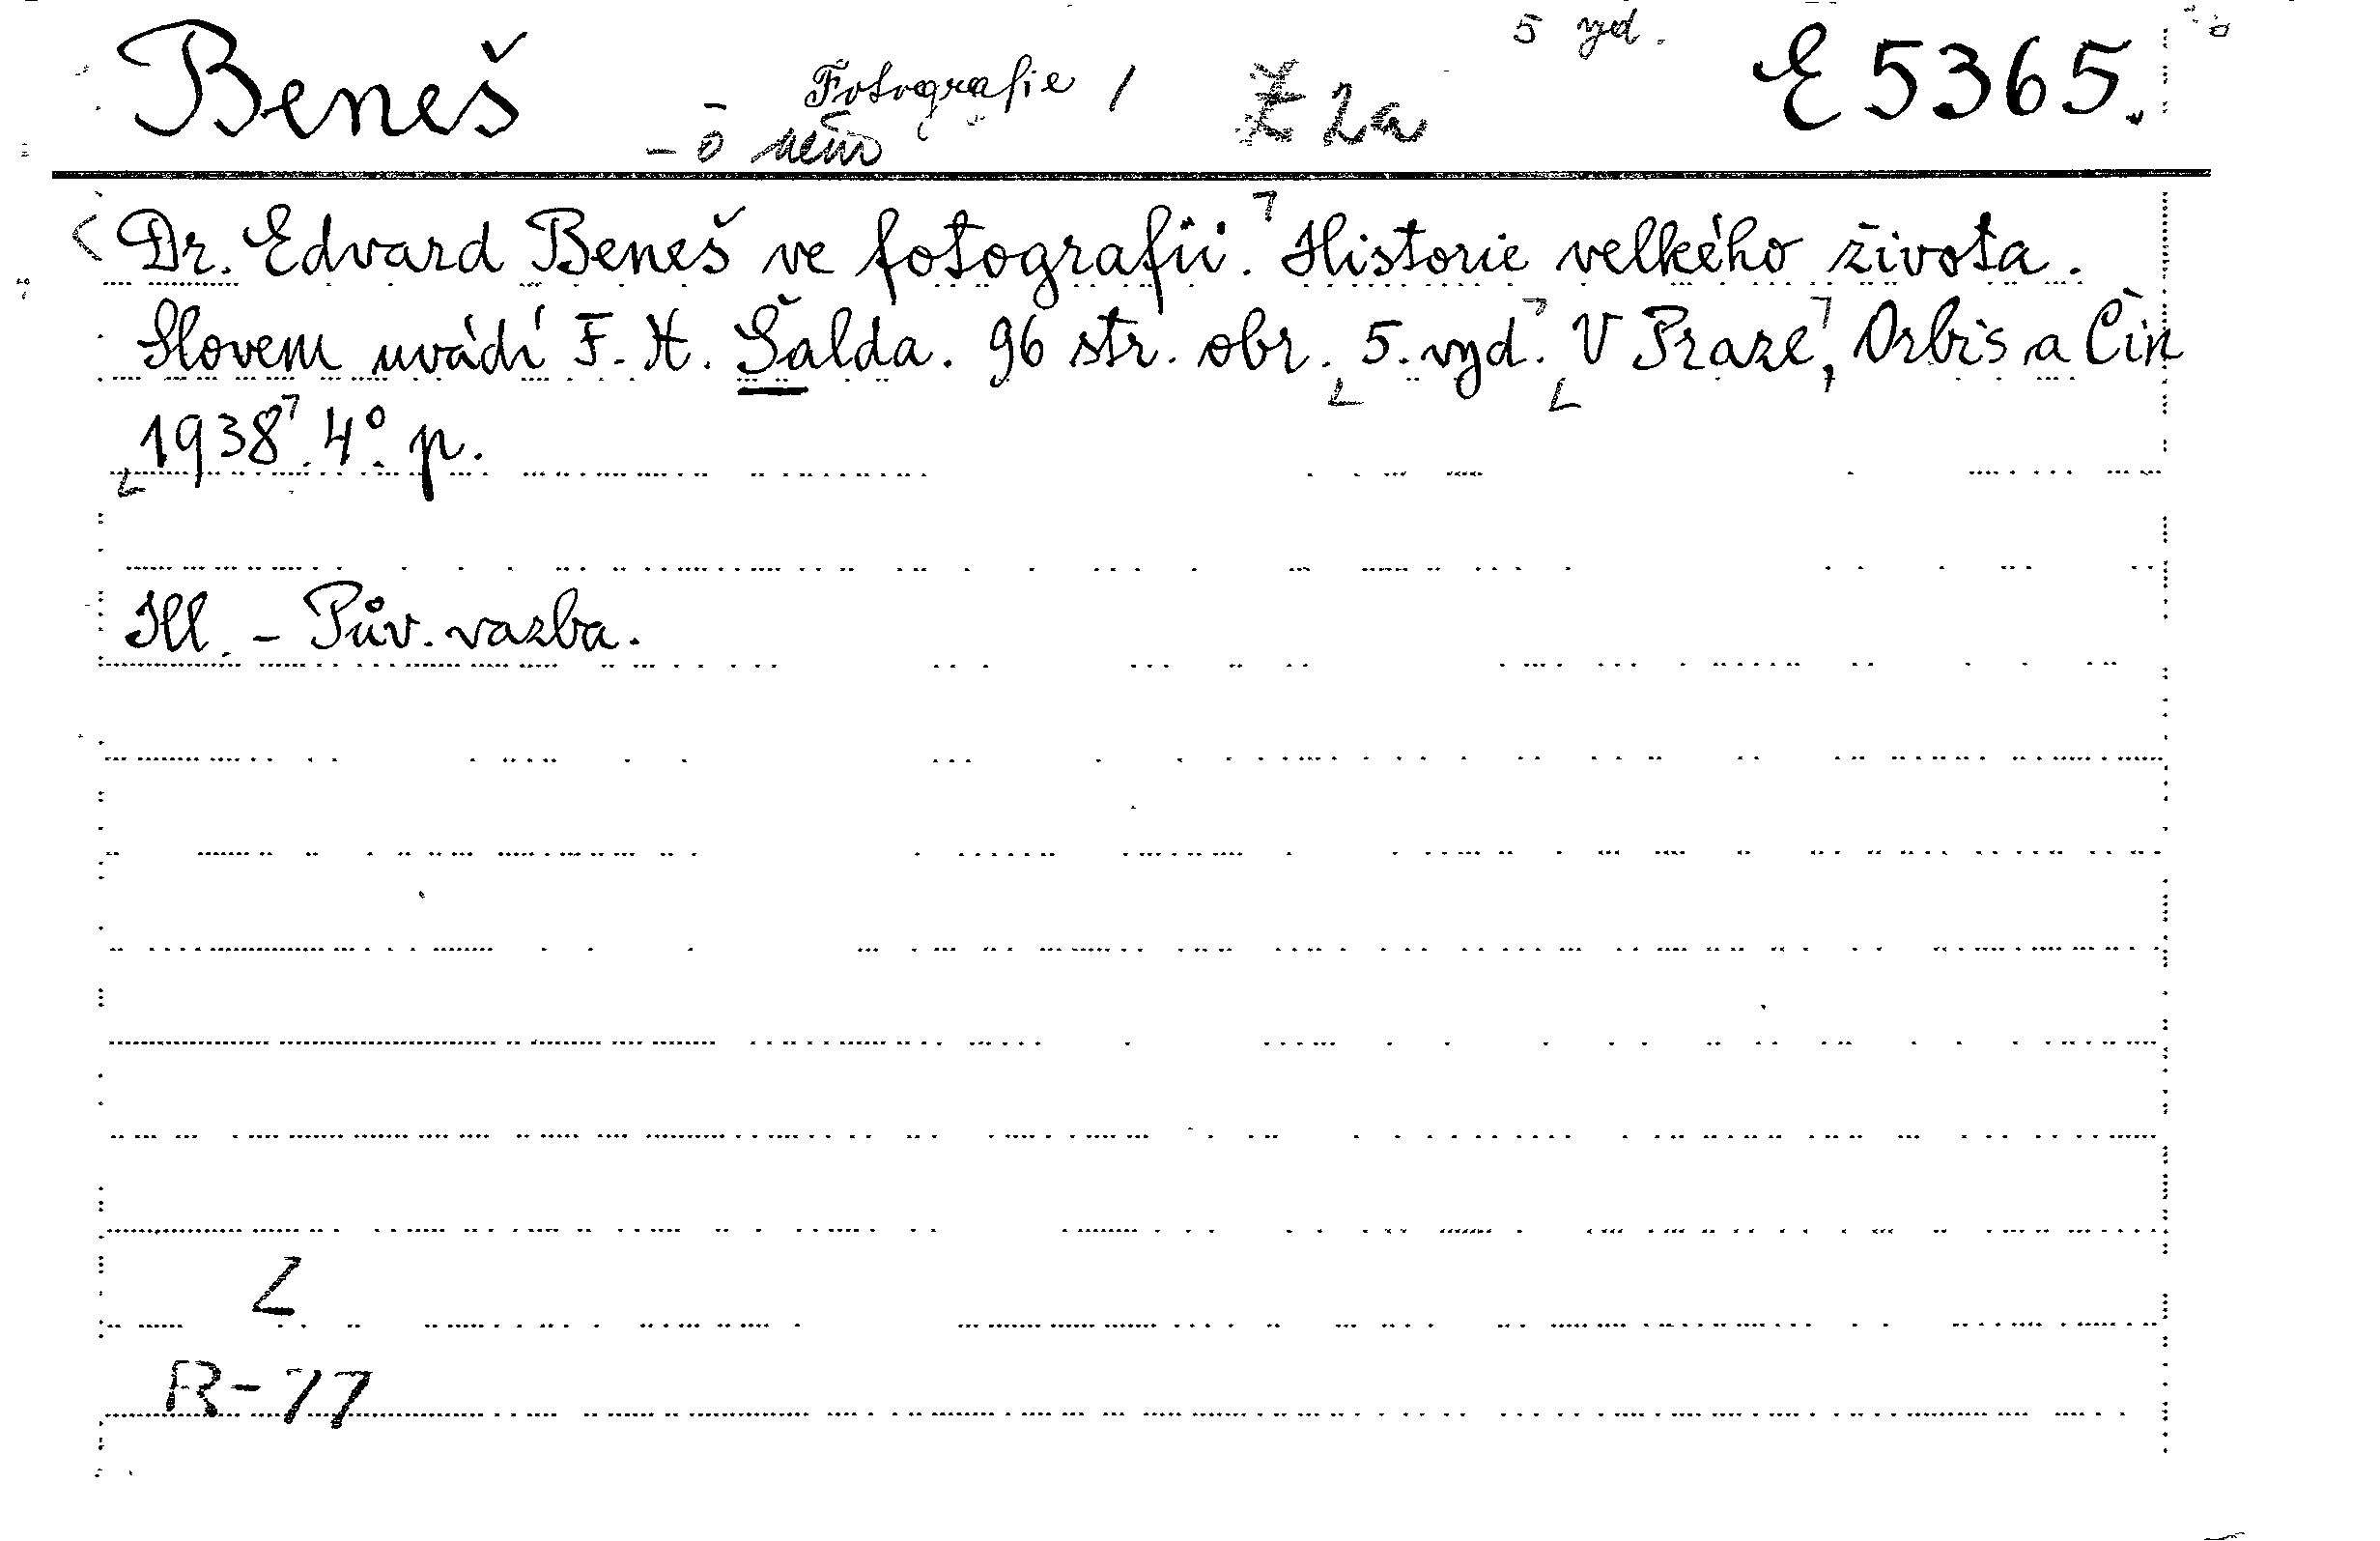 5 vyd.
Beneš - Fotografie / Z 2a E 5365.
- o něm
Dr. Edvard Beneš ve fotografii. Historie velkého života.
Slovem uvádí F. X. Šalda. 96 str. obr. 5. vyd. V Praze, Orbis a Čin
1938. 4°. p.
Ill. - Pův. vazba.
Z
R-77